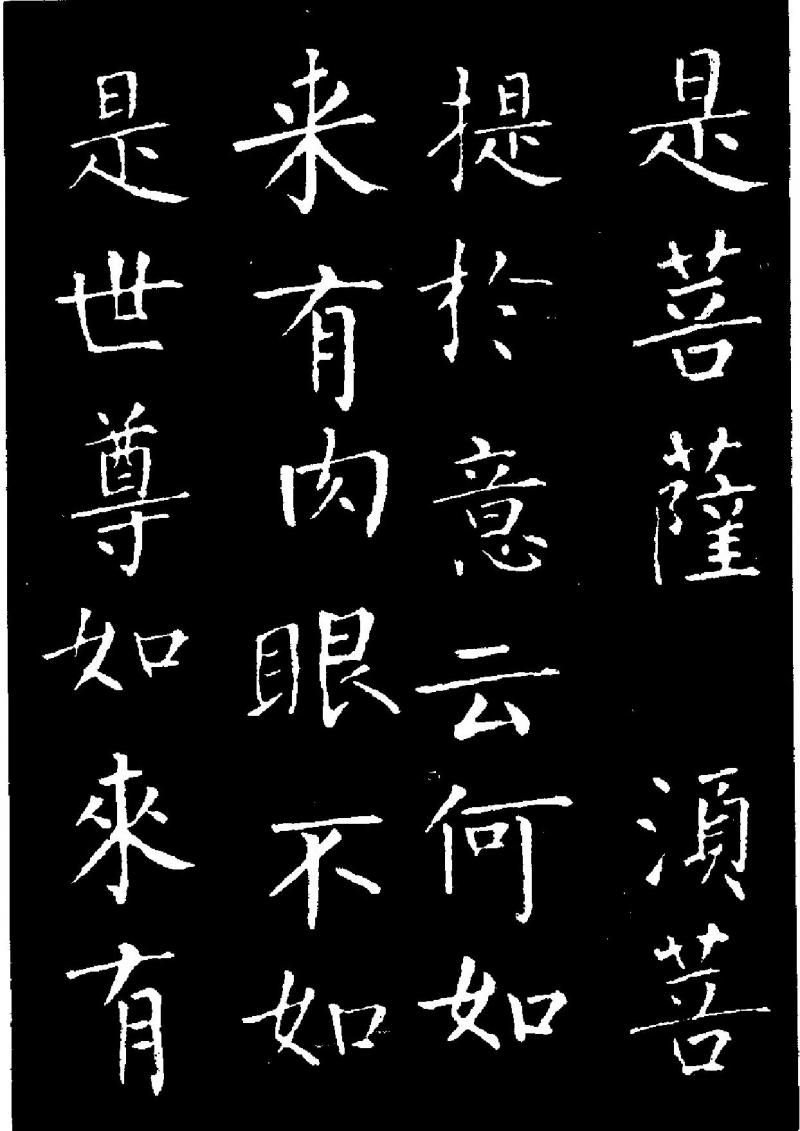 是菩薩 湏菩
提於意云何如
来有肉眼不如
是世尊如來有